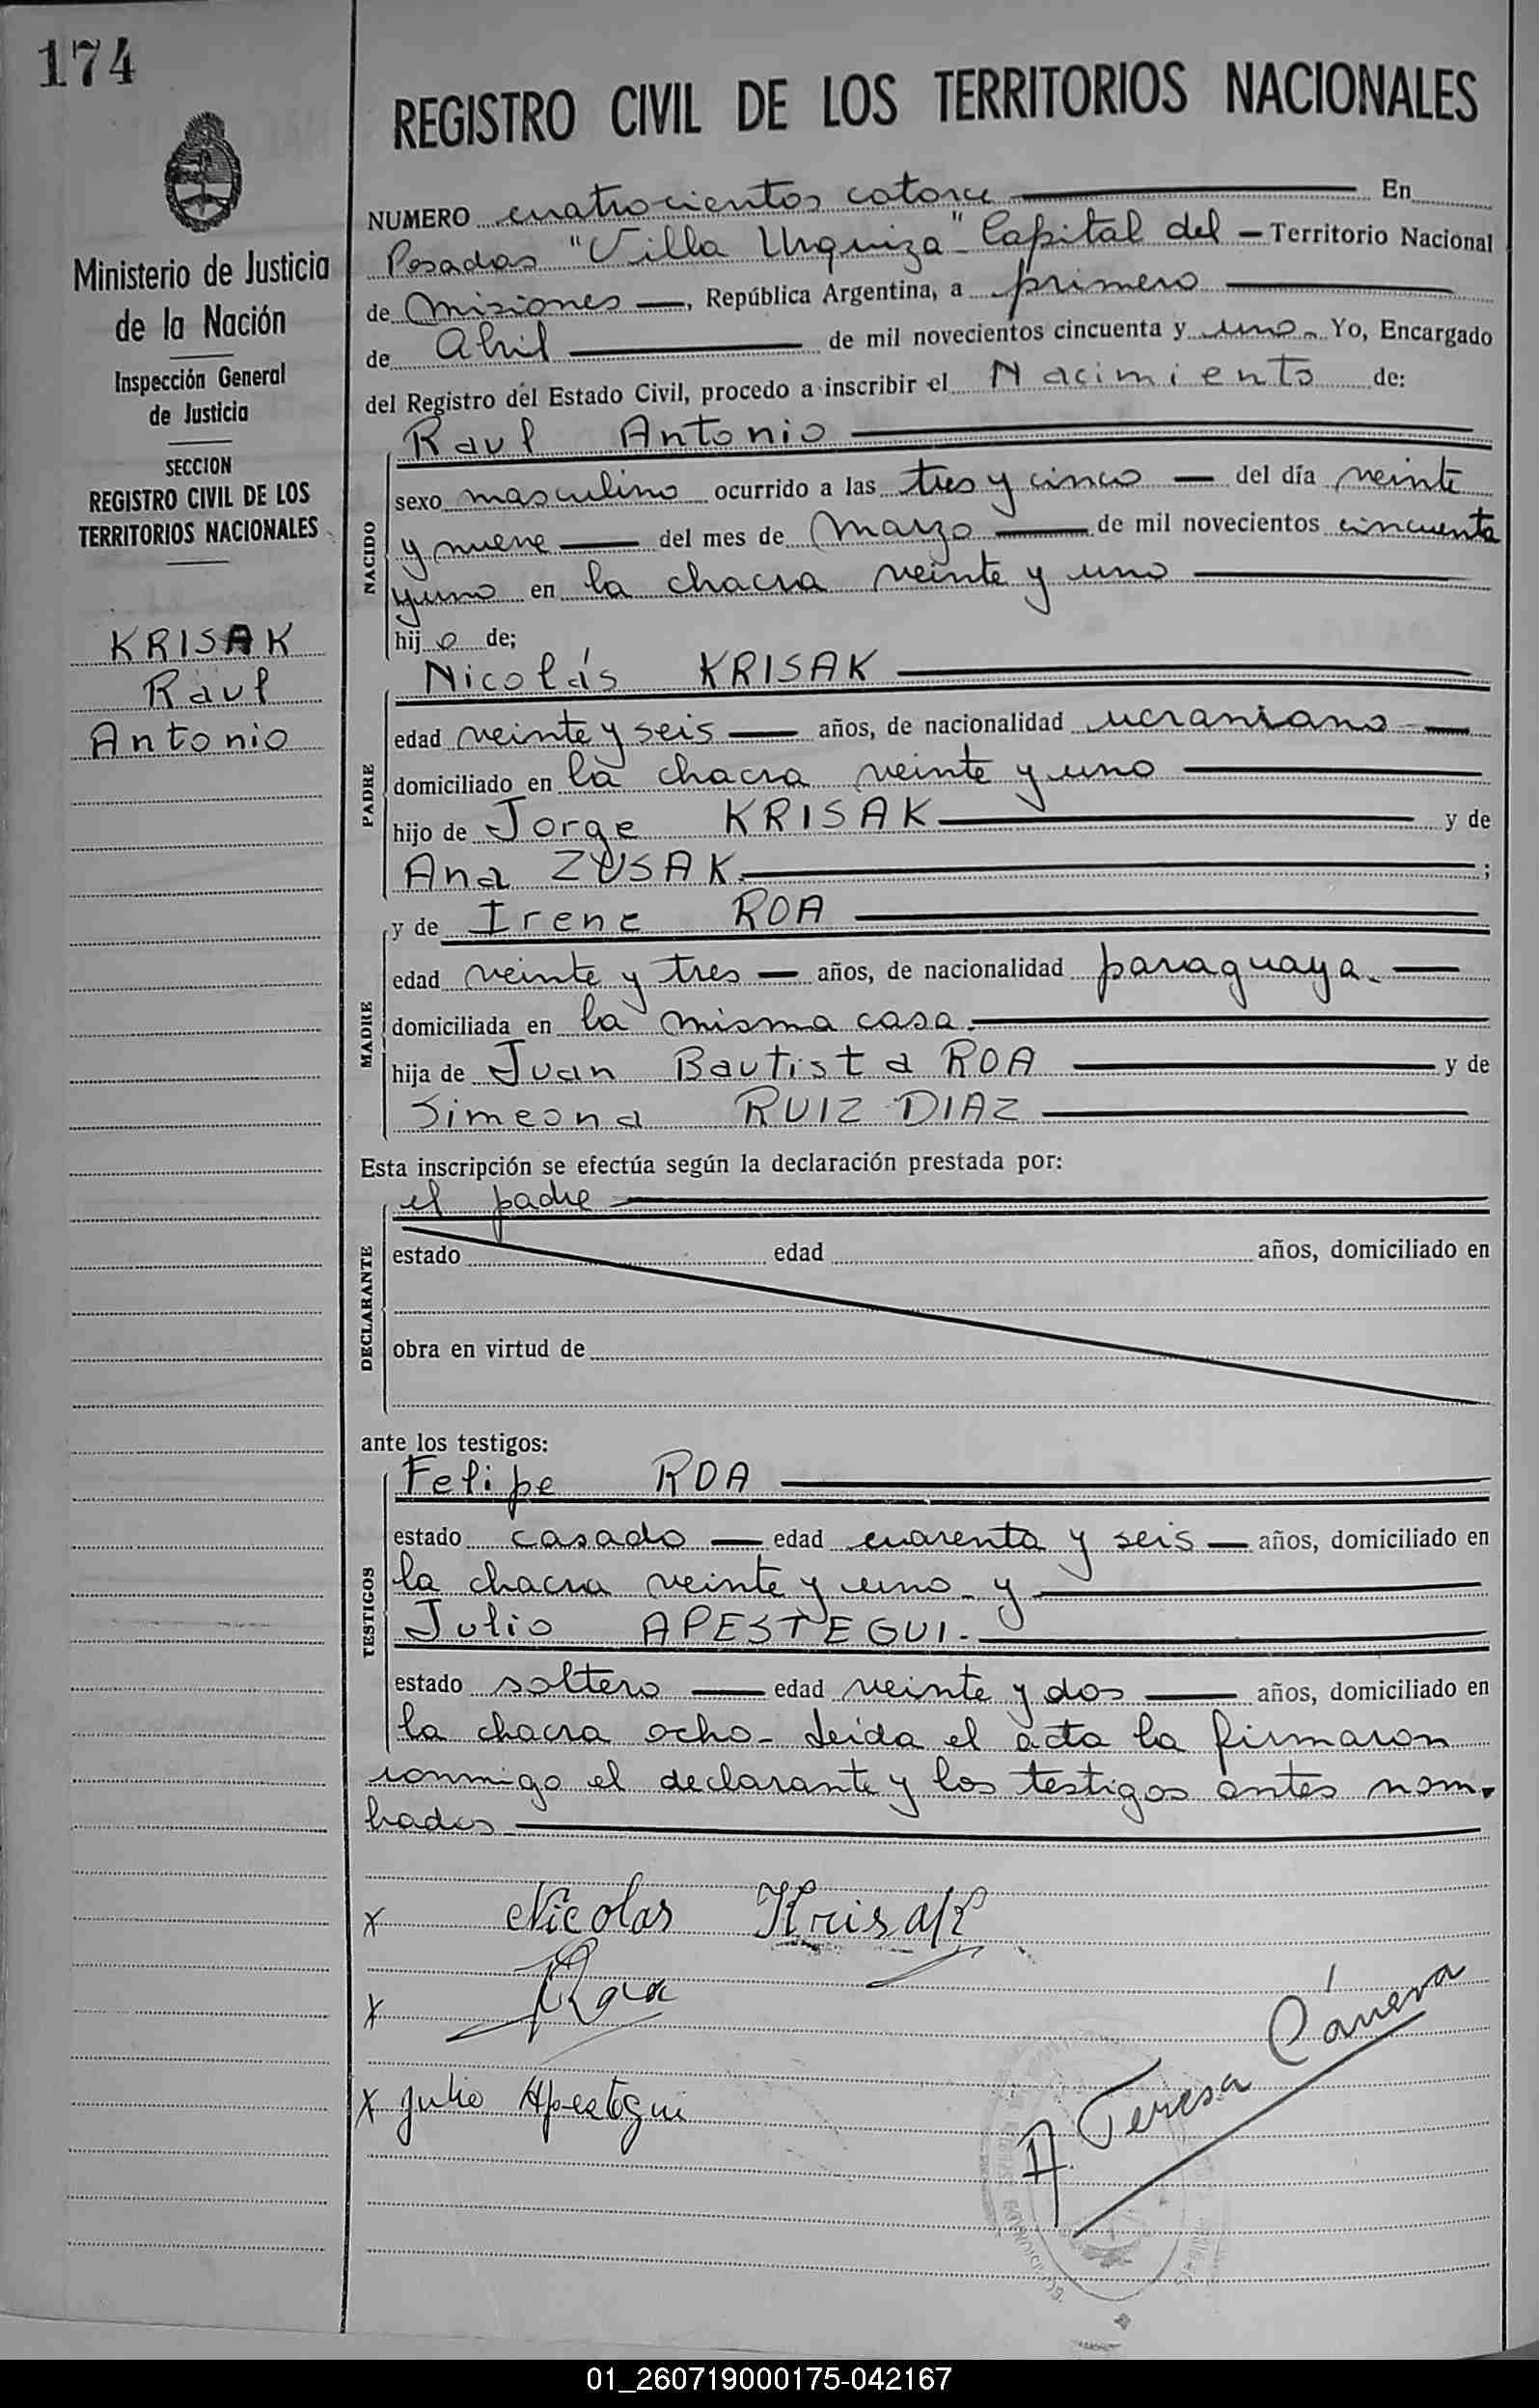 174
Ministerio de Justicia
de la Nación
Inspección General
de Justicia
SECCION
REGISTRO CIVIL DE LOS
TERRITORIOS NACIONALES
KRISAK
Raul
Antonio
REGISTRO CIVIL DE LOS TERRITORIOS NACIONALES
NUMERO cuatrocientos catorce En
Posadas "Villa Urquiza" Capital del Territorio Nacional
de Misiones, República Argentina, a primero
de Abril de mil novecientos cincuenta y uno. Yo, Encargado
del Registro del Estado Civil, procedo a inscribir el Nacimiento de:
NACIDO
Raul Antonio
sexo masculino ocurrido a las tres y cinco del día veinte
y nueve del mes de Marzo de mil novecientos cincuenta
y uno en la chacra veinte y uno
hijo de;
PADRE
Nicolás KRISAK
edad veinte y seis años, de nacionalidad ucraniano
domiciliado en la chacra veinte y uno
hijo de Jorge KRISAK y de
Ana ZUSAK ;
MADRE
y de Irene ROA
edad veinte y tres años, de nacionalidad paraguaya.
domiciliada en la misma casa.
hija de Juan Bautista ROA y de
Simeona RUIZ DIAZ
Esta inscripción se efectúa según la declaración prestada por:
DECLARANTE
el padre
estado edad años, domiciliado en
obra en virtud de
ante los testigos:
TESTIGOS
Felipe ROA
estado casado edad cuarenta y seis años, domiciliado en
la chacra veinte y uno y
Julio APESTEGUI.
estado soltero edad veinte y dos años, domiciliado en
la chacra ocho- Leida el acta la firmaron
conmigo el declarante y los testigos antes nom-
brados
x Nicolas Krisak
x Roa
x Julio Apestegui
A. Teresa Cánera
01_260719000175-042167